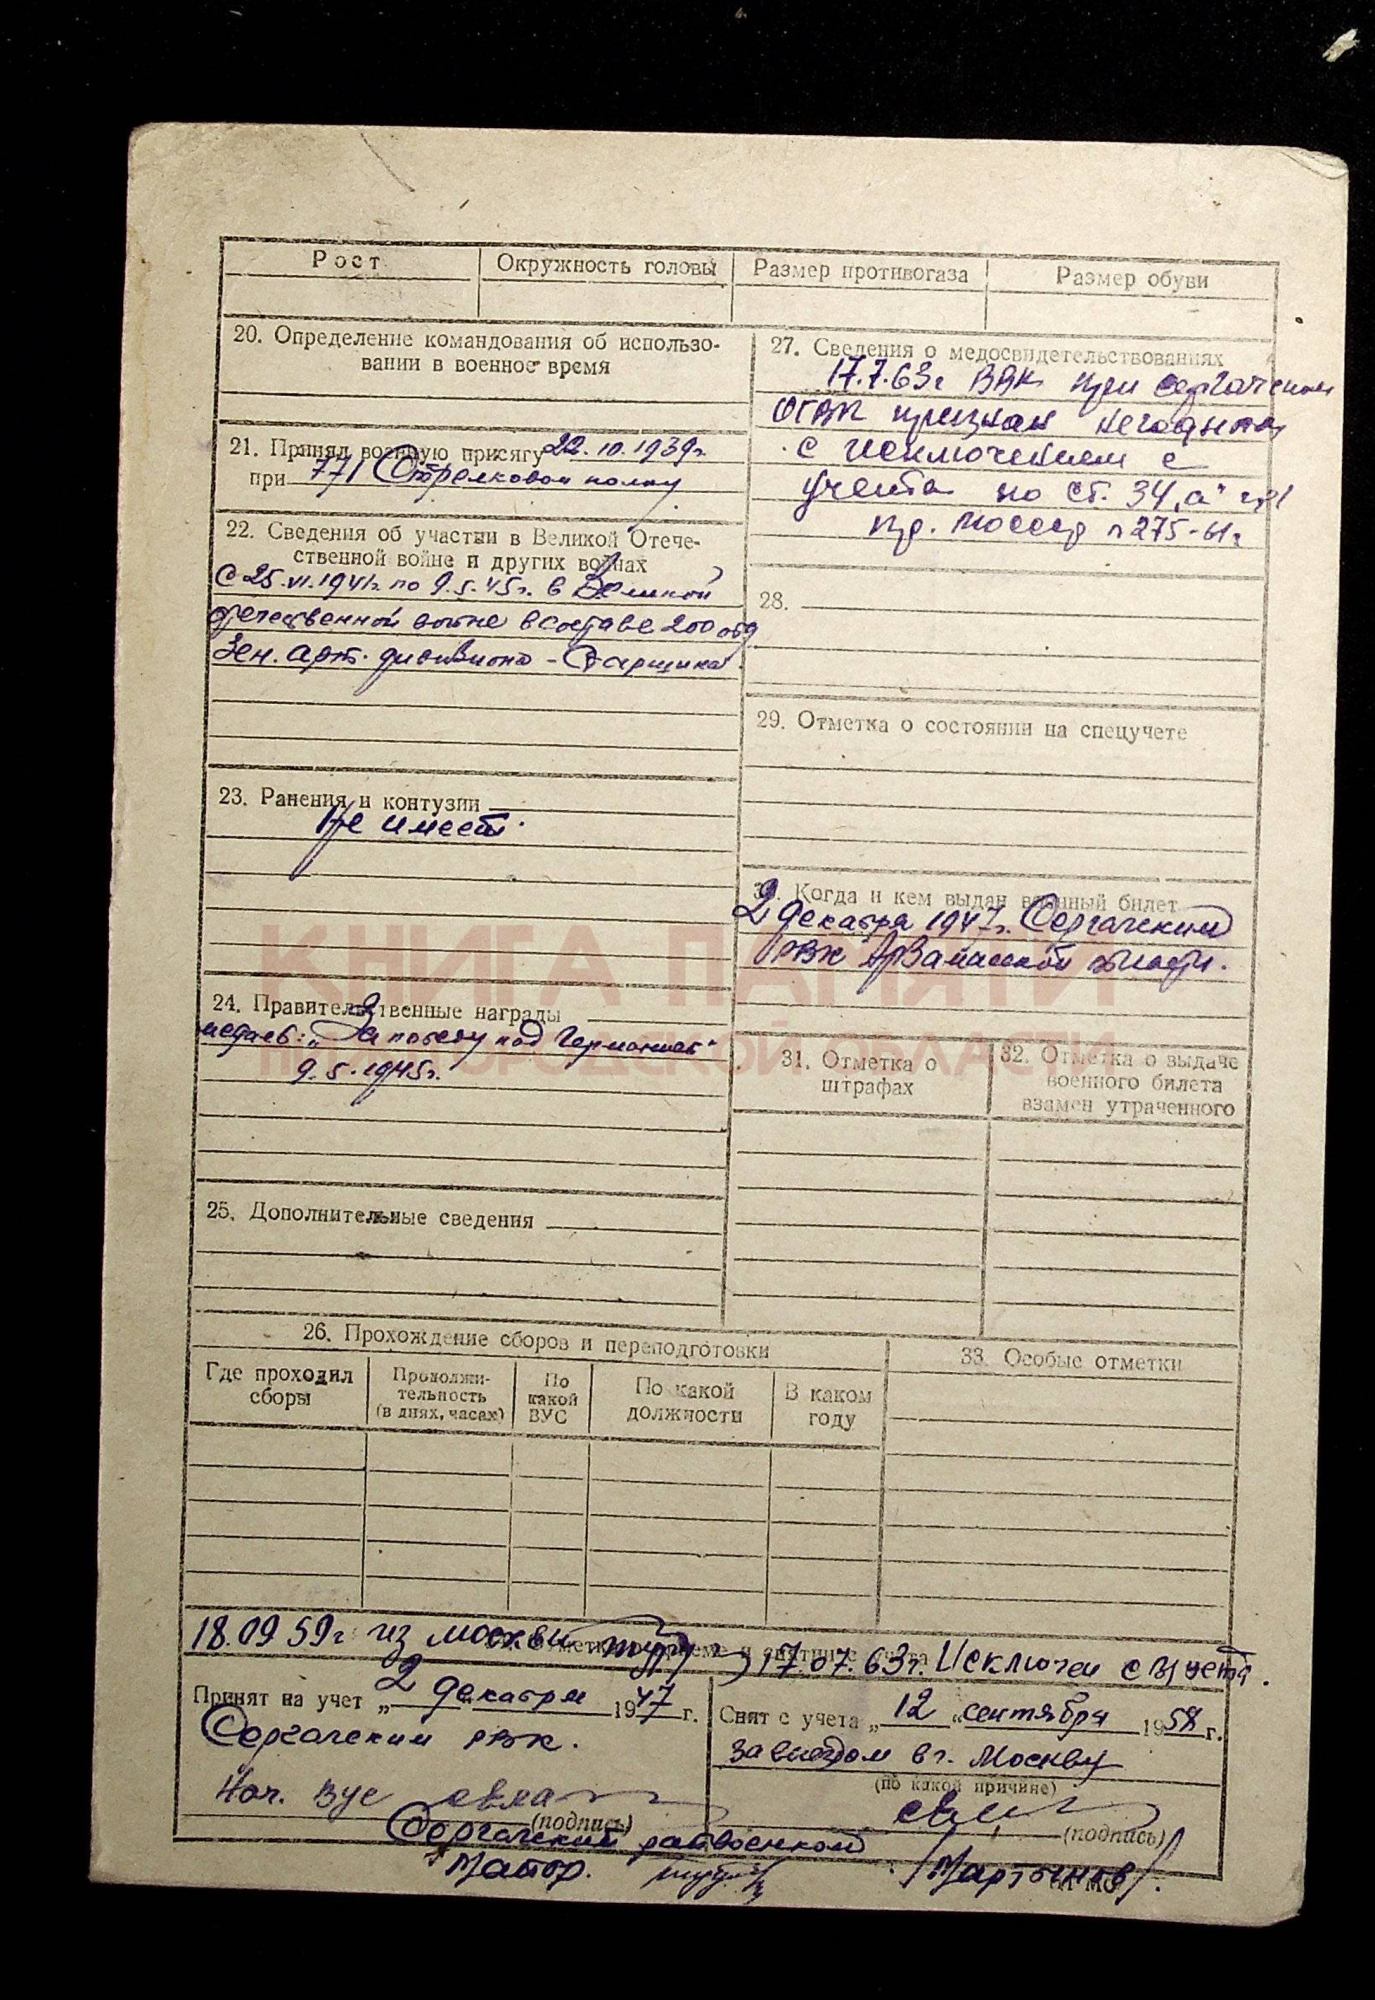 Рост
Окружность головы
Размер противогаза
Размер обуви
20. Определение командования об использо-
вании в военное время
21. Принял военную присягу 22.10.1939г.
при 771 Стрелковом полку
22. Сведения об участии в Великой Отече-
ственной войне и других войнах
С 25.VI.1941г. по 9.5.45г. в Великой
отечественной войне в составе 200 отд
Зен. арт. дивизиона - Старшина.
23. Ранения и контузии
Не имеет.
24. Правительственные награды
медаль: „За победу над Германией"
9.5.1945г.
25. Дополнительные сведения
27. Сведения о медосвидетельствованиях
17.7.63г ВВК при Сергачском
ОГВК признан негодным
с исключением с
учета по ст. 34 „а" гр 1
пр. МО СССР н 275-61г
28.
29. Отметка о состоянии на спецучете
30. Когда и кем выдан военный билет
2 декабря 1947г. Сергачским
РВК Арзамасской области.
31. Отметка о
штрафах
32. Отметка о выдаче
военного билета
взамен утраченного
КНИГА ПАМЯТИ
НИЖЕГОРОДСКОЙ ОБЛАСТИ
26. Прохождение сборов и переподготовки
33. Особые отметки
Где проходил
сборы
Продолжи-
тельность
(в днях, часах)
По
какой
ВУС
По какой
должности
В каком
году
18.09 59г из Москвы
17.07.63г. Исключен с в/учета.
Принят на учет „2" декабря 1947 г.
Сергачским РВК.
Нач. ВУС
(подпись)
Снят с учета „12" сентября 1958 г.
за выездом в г. Москву
(по какой причине)
(подпись)
Сергачский райвоенком
Майор.
/Мартынов/.